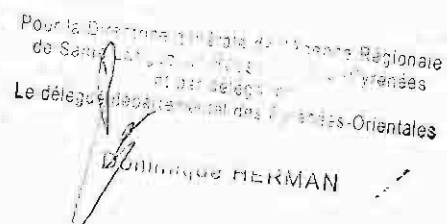 Pour la Directrice générale de l'Agence Régionale
de Santé Pyrénées
et par délégation
Le délégué départemental des Pyrénées-Orientales
Dominique HERMAN